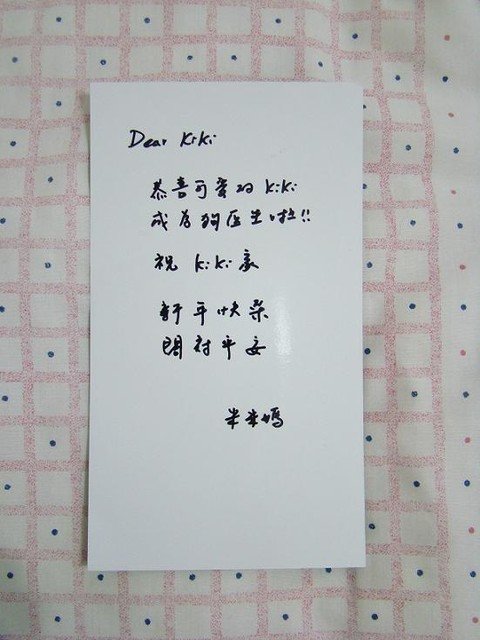 Dear KiKi
恭喜可愛的 KiKi
成為狗医生啦!!
祝 KiKi家
新年快樂
閤府平安
米米媽